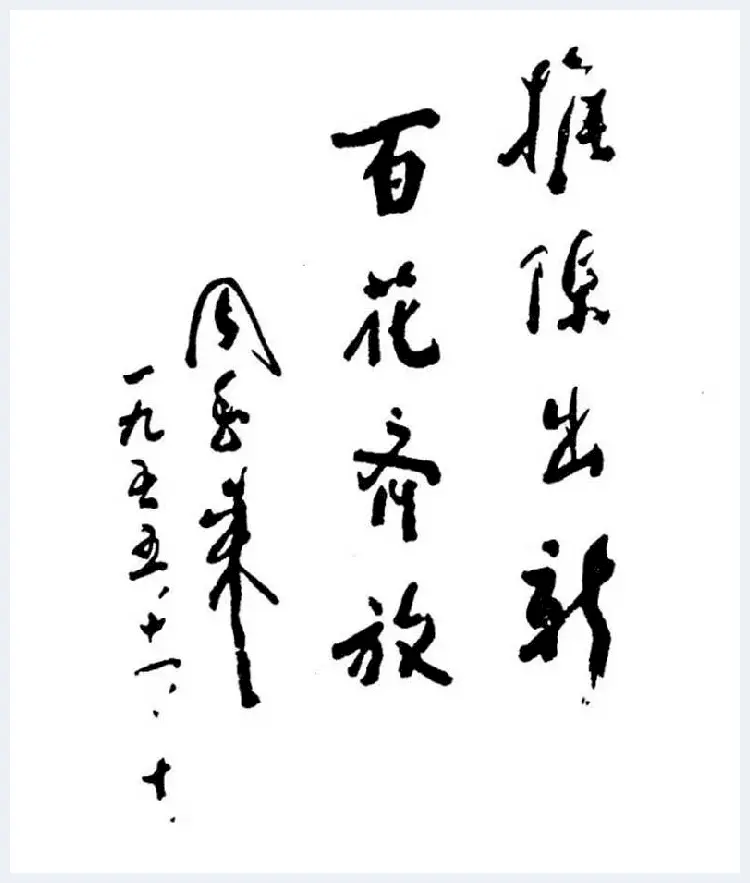 推陈出新
百花齐放
周恩来
一九五五、十一、十.